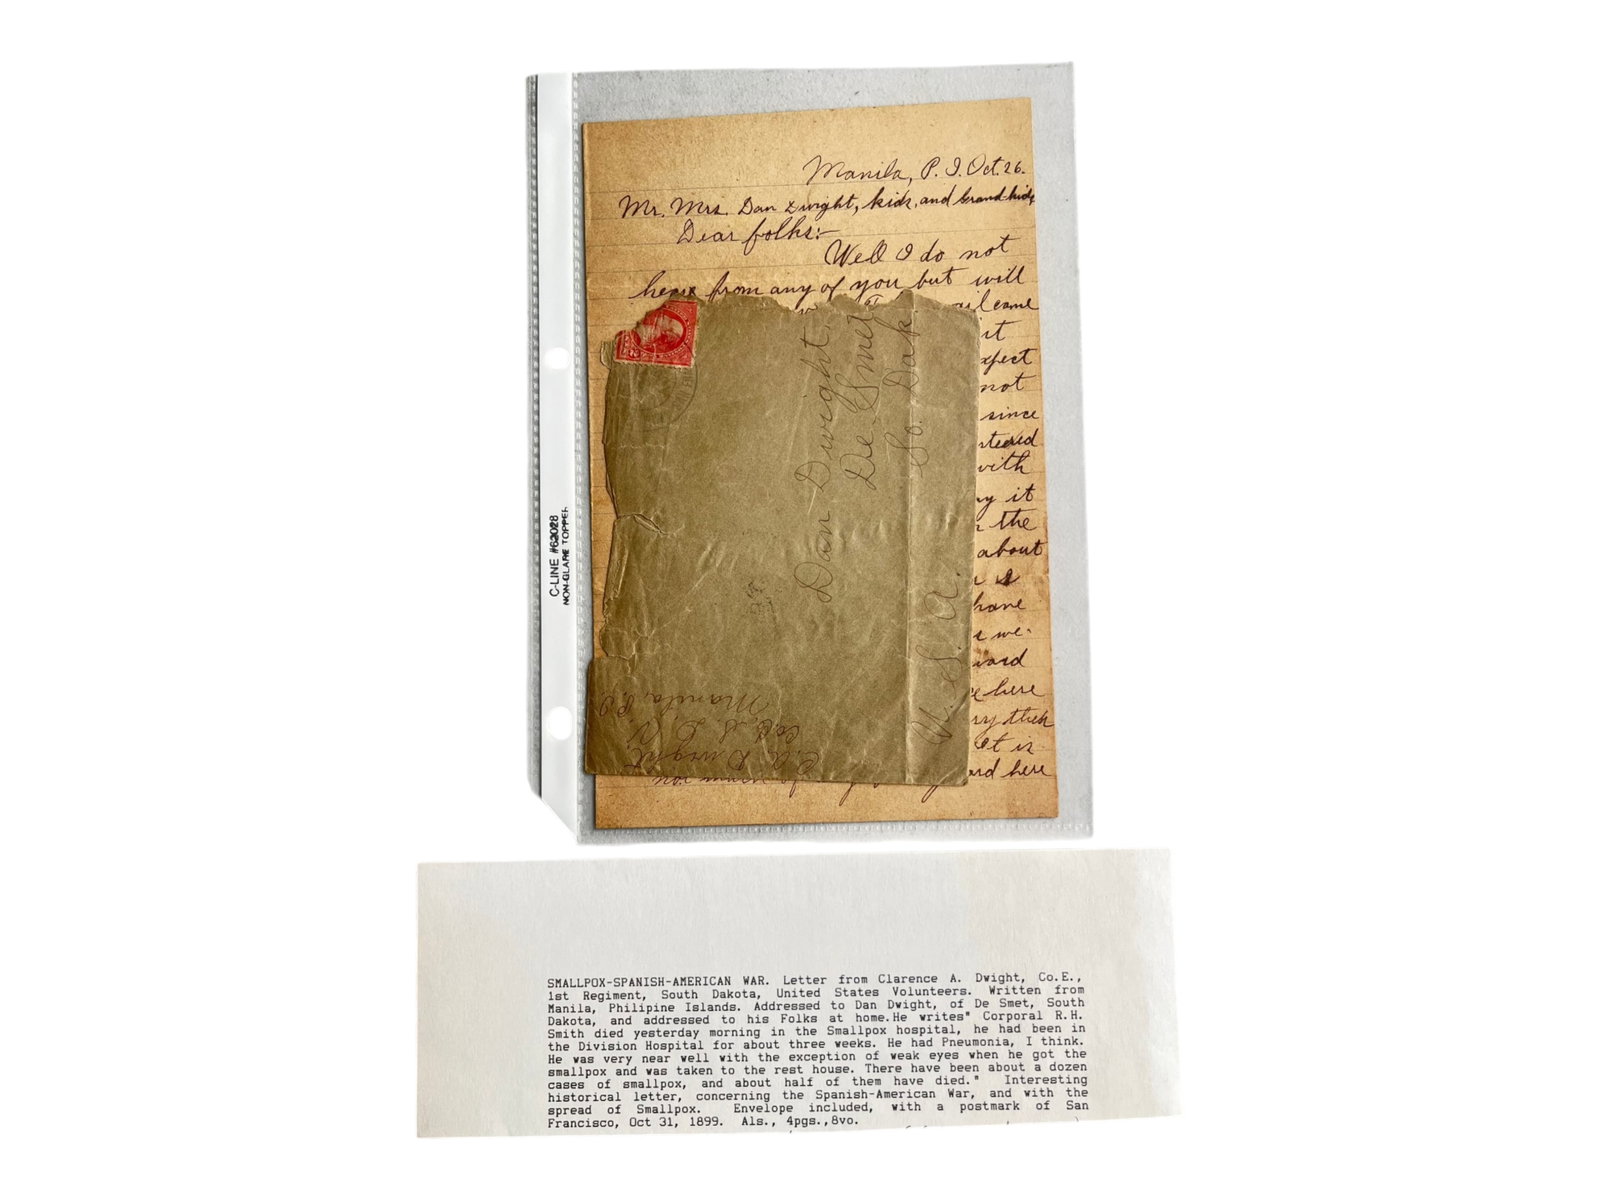 Manila, P. I. Oct. 26.
Mr. Mrs. Dan Dwight, kids, and Grand-kids
Dear folks:-
Well I do not
hear from any of you but will
mail came
it
expect
not
since
with
it
the
about
I
have
we.
here
then
is
here
Dan Dwight,
De Smet
So. Dak
U. S. A.
C. A. Dwight
Co. E. S. D. V.
Manila, P. I.
C-LINE #62028
NON-GLARE TOPPER
SMALLPOX-SPANISH-AMERICAN WAR. Letter from Clarence A. Dwight, Co.E.,
1st Regiment, South Dakota, United States Volunteers. Written from
Manila, Philipine Islands. Addressed to Dan Dwight, of De Smet, South
Dakota, and addressed to his Folks at home.He writes" Corporal R.H.
Smith died yesterday morning in the Smallpox hospital, he had been in
the Division Hospital for about three weeks. He had Pneumonia, I think.
He was very near well with the exception of weak eyes when he got the
smallpox and was taken to the rest house. There have been about a dozen
cases of smallpox, and about half of them have died." Interesting
historical letter, concerning the Spanish-American War, and with the
spread of Smallpox. Envelope included, with a postmark of San
Francisco, Oct 31, 1899. Als., 4pgs.,8vo.